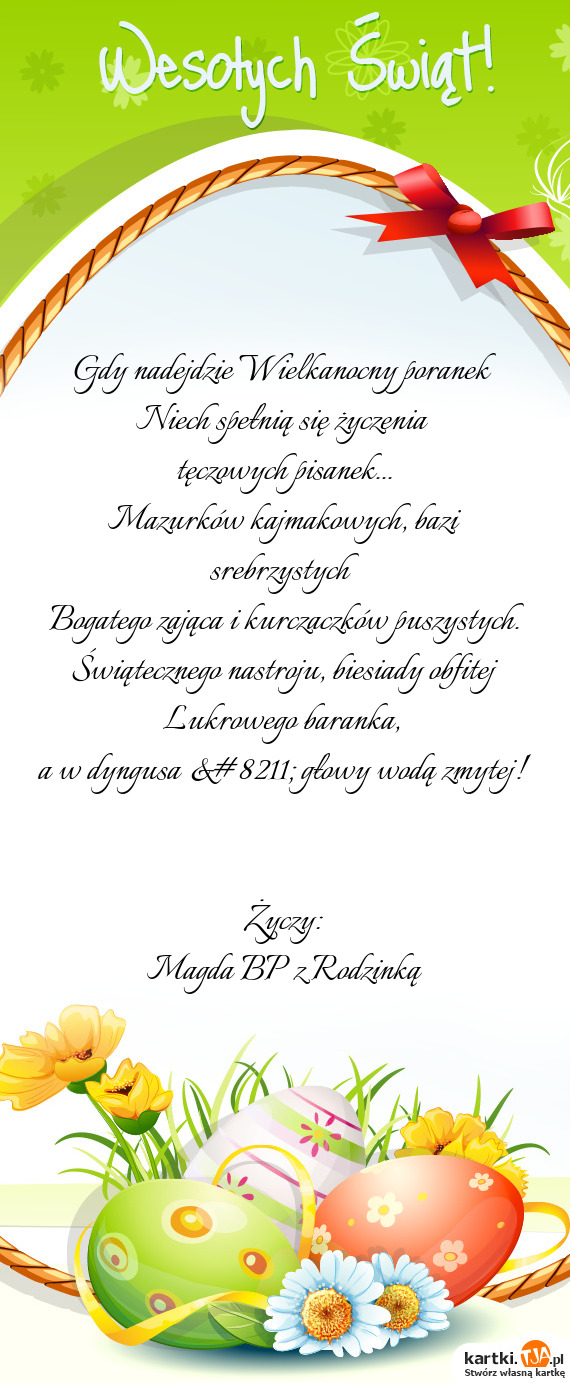 Wesołych Świąt!
Gdy nadejdzie Wielkanocny poranek
Niech spełnią się życzenia
tęczowych pisanek...
Mazurków kajmakowych, bazi
srebrzystych
Bogatego zająca i kurczaczków puszystych.
Świątecznego nastroju, biesiady obfitej
Lukrowego baranka,
a w dyngusa &# 8211; głowy wodą zmytej!
Życzy:
Magda BP z Rodzinką
kartki.TJA.pl
Stwórz własną kartkę